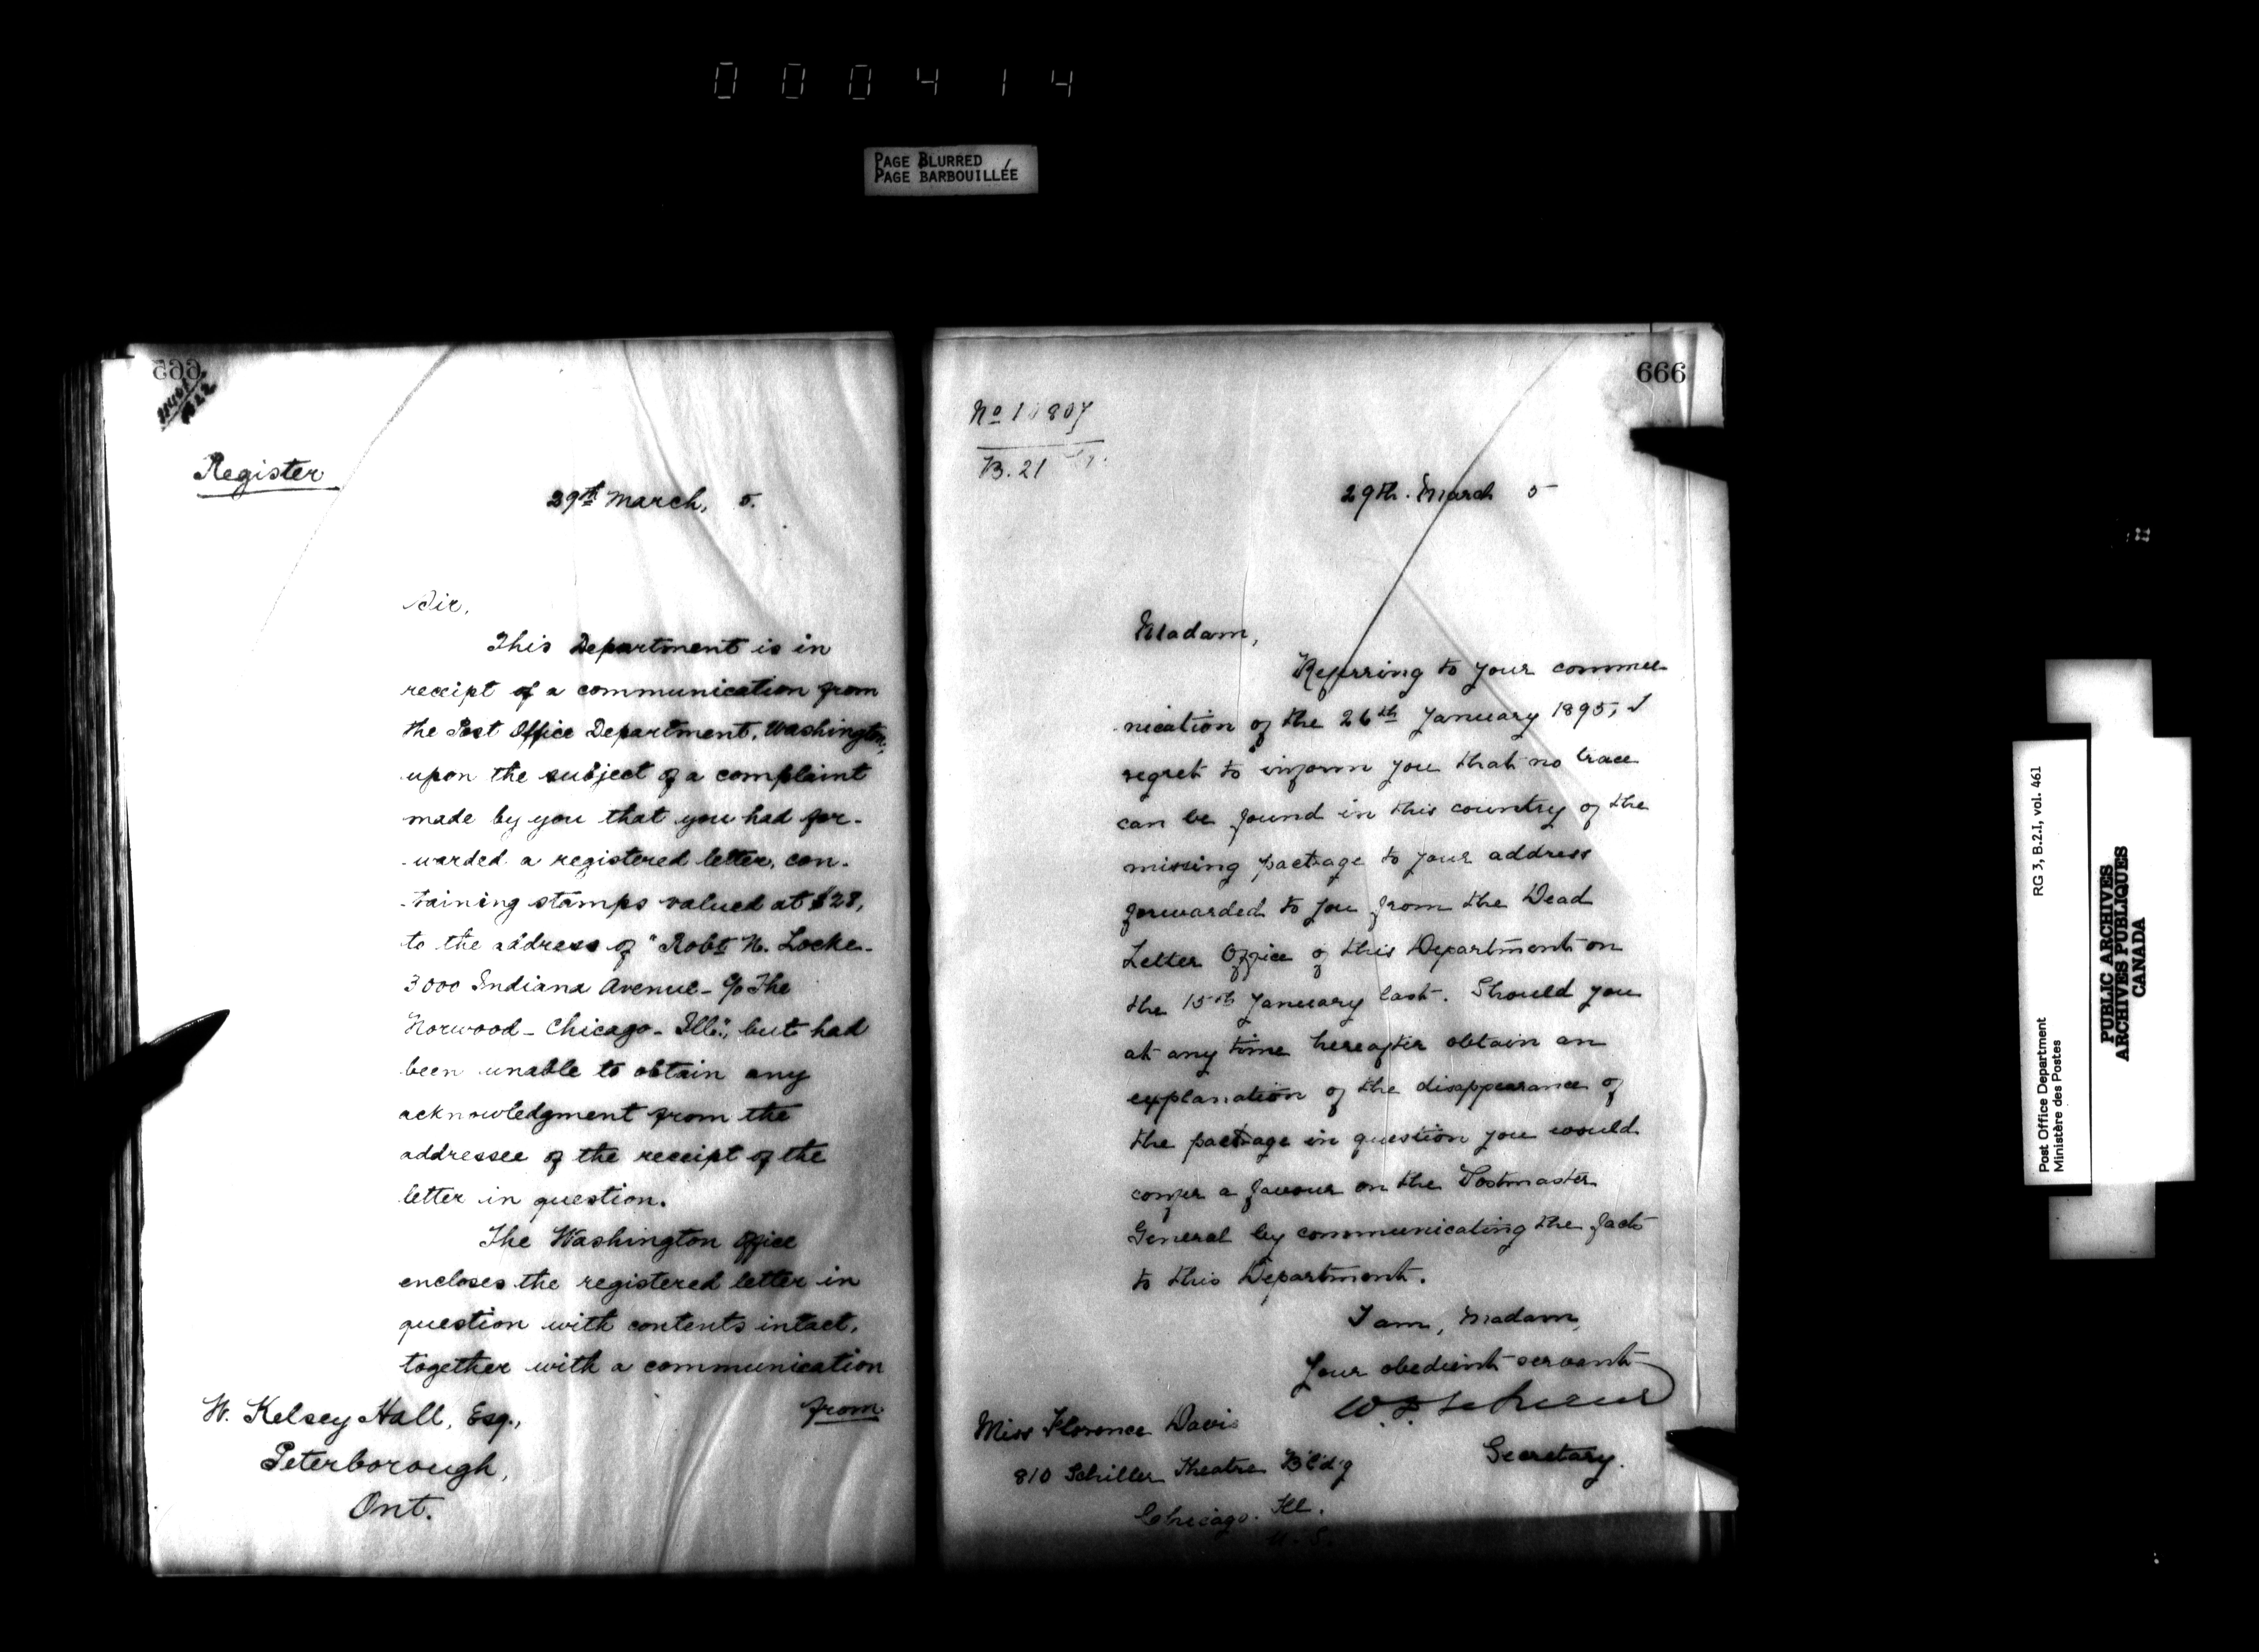 000414
PAGE BLURRED
PAGE BARBOUILLÉE
665
Register
29th March, 5.
Sir,
This Department is in
receipt of a communication from
the Post Office Department, Washington,
upon the subject of a complaint
made by you that you had for-
-warded a registered letter, con-
-taining stamps valued at $28,
to the address of "Robt N. Locke-
3000 Indiana Avenue - c/o The
Norwood - Chicago - Ill.", but had
been unable to obtain any
acknowledgment from the
addressee of the receipt of the
letter in question.
The Washington Office
encloses the registered letter in
question with contents intact,
together with a communication
from
W. Kelsey Hall, Esq.,
Peterborough,
Ont.
666
No 10807
B. 21
29th. March 5
Madam,
Referring to your commu-
nication of the 26th January 1895, I
regret to inform you that no trace
can be found in this country of the
missing package to your address
forwarded to you from the Dead
Letter Office of this Department on
the 15th January last. Should you
at any time hereafter obtain an
explanation of the disappearance of
the package in question you would
confer a favour on the Postmaster
General by communicating the fact
to this Department.
I am, Madam,
Your obedient servant
Secretary.
Miss Florence Davis
810 Schiller Theatre Bld'g
Chicago. Ill.
U. S.
Post Office Department RG 3, B.2.I, vol. 461
Ministère des Postes
PUBLIC ARCHIVES
ARCHIVES PUBLIQUES
CANADA